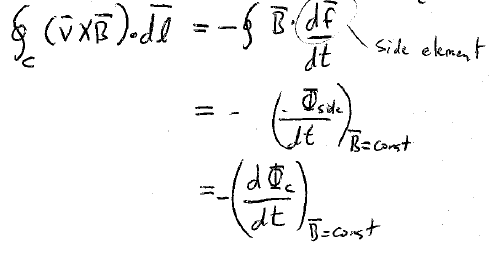 ∮_C (v̄ × B̄)·dl̄ = -∮ B̄·df̄/dt side element
= - (-Φ_side/dt)_B̄=const
= -(dΦ_c/dt)_B̄=const